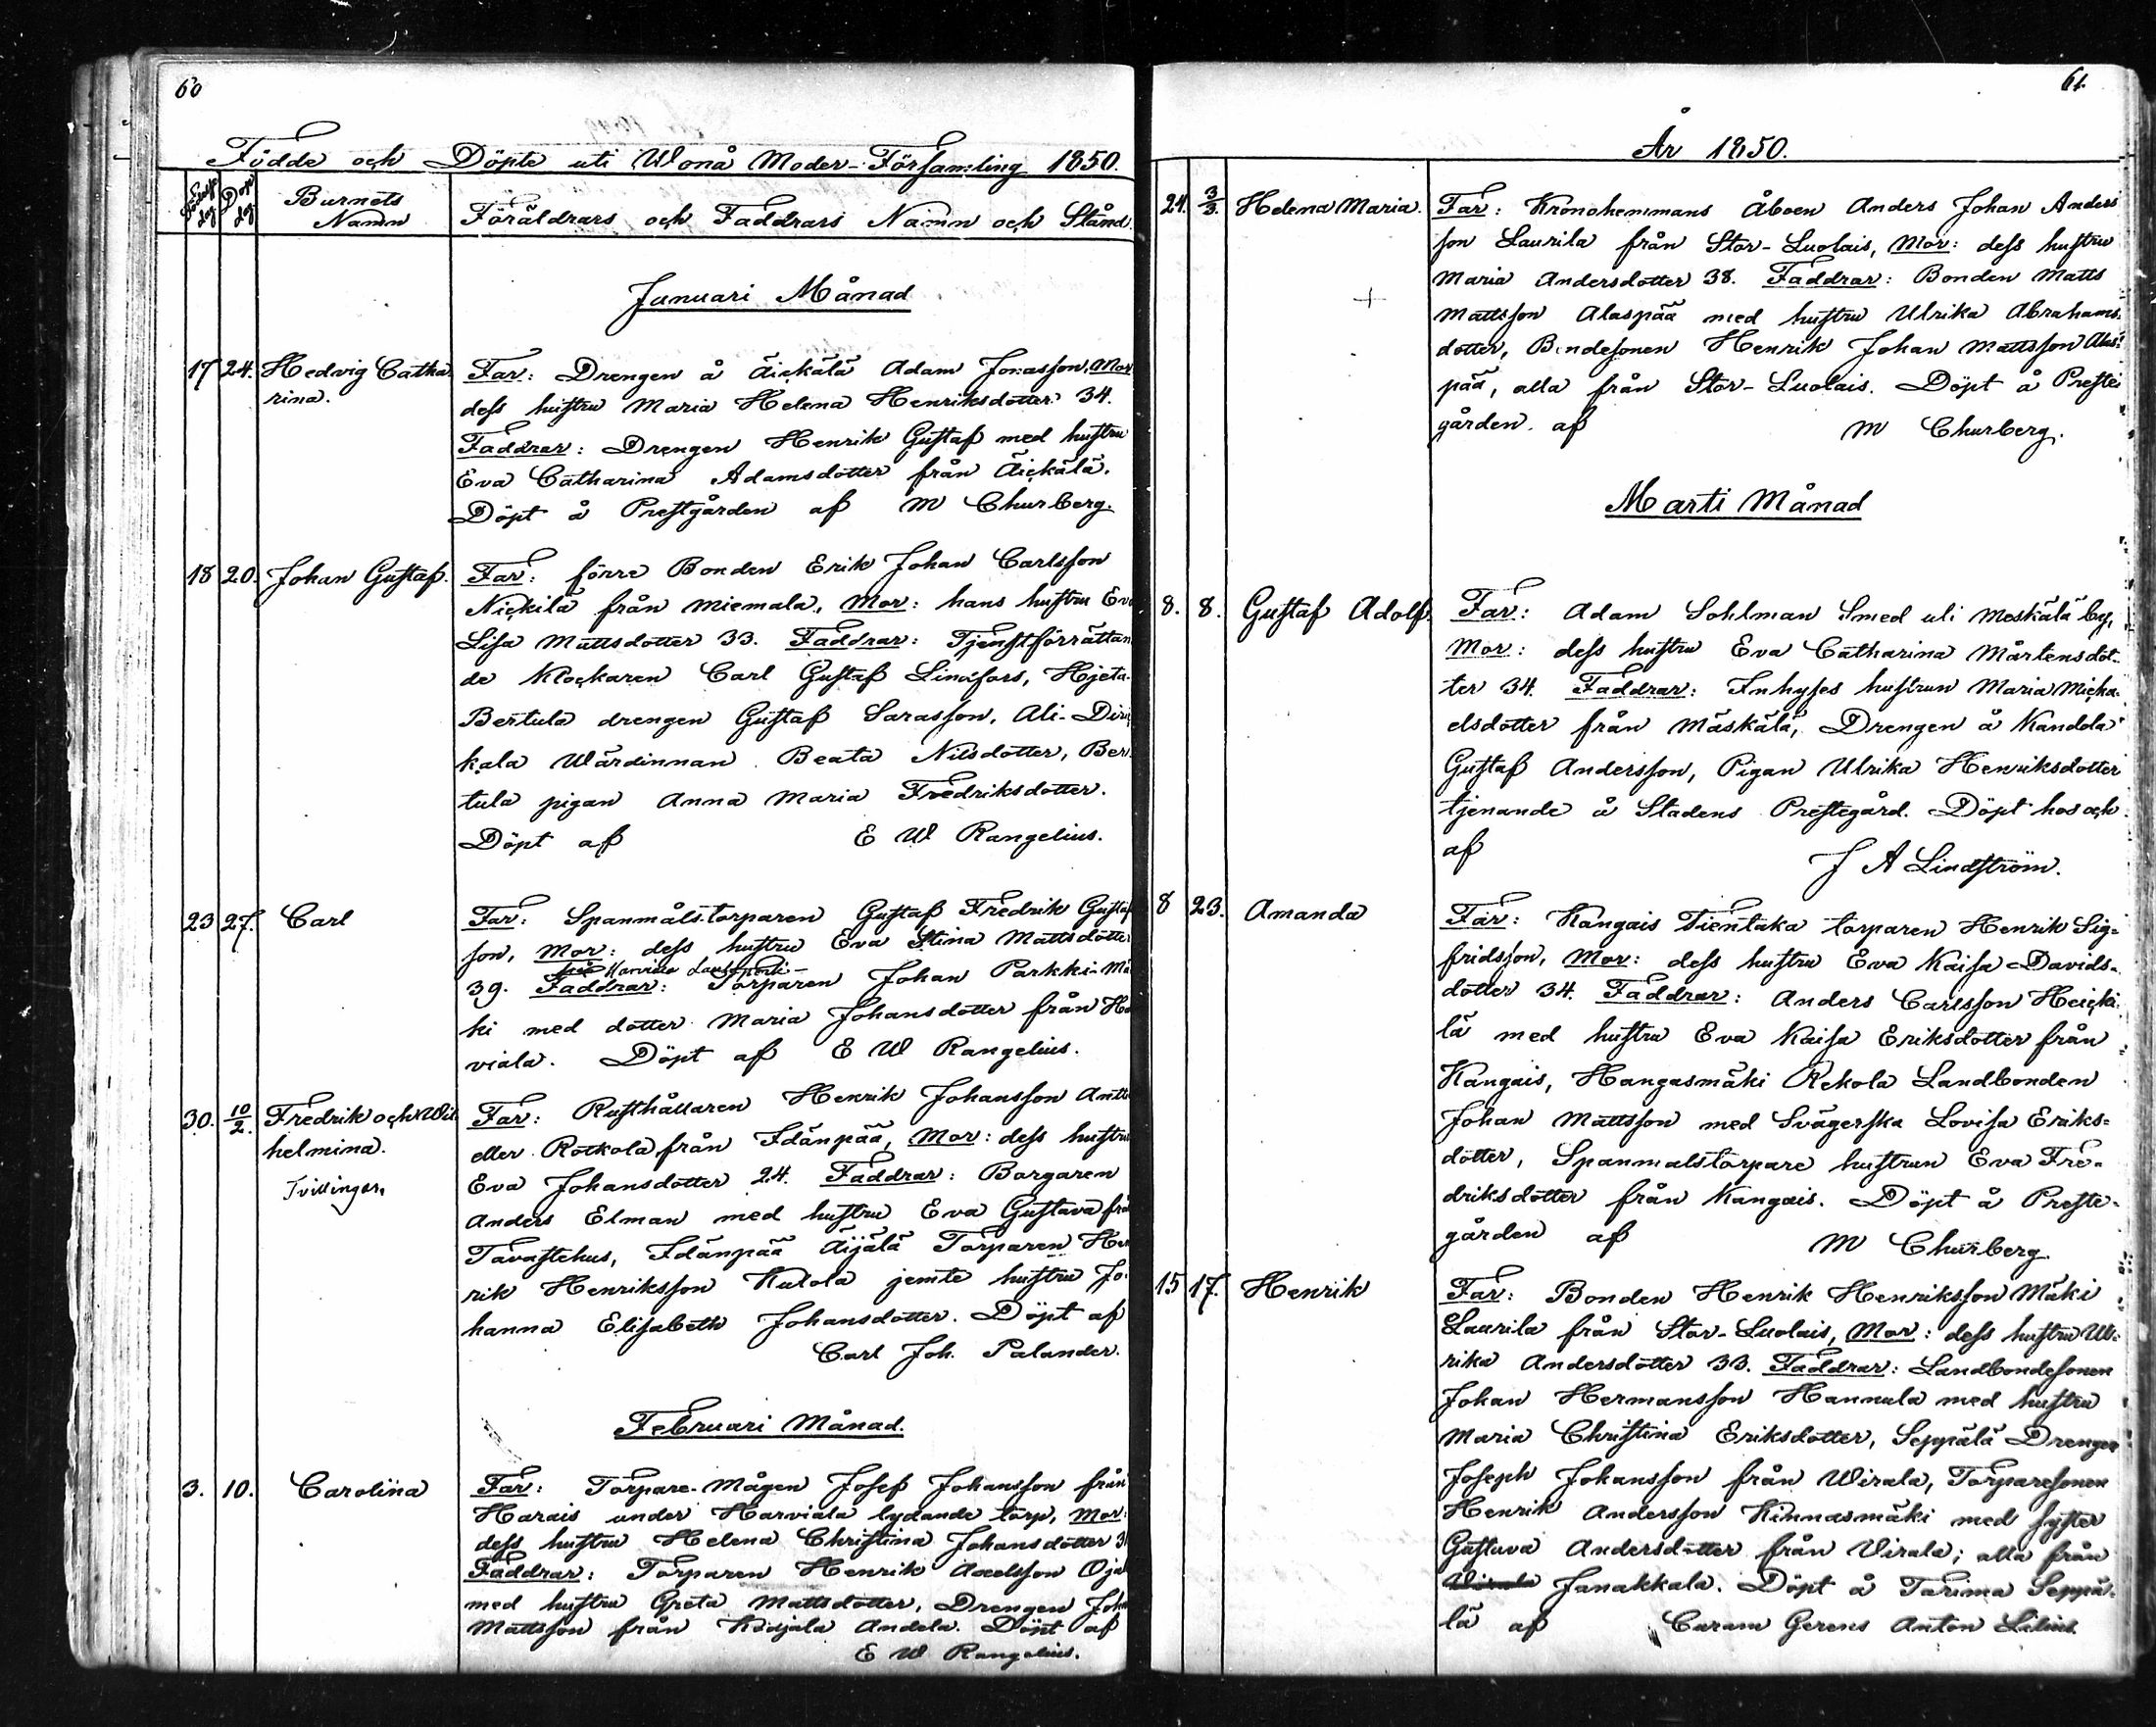 60
Födde och Döpte uti Wonå Moder-Församling 1850.
Födelse dag
Dop dag
Barnets Namn
Föräldrars och Faddrars Namn och Stånd.
Januari Månad
17 24. Hedvig Catharina.
Far: Drengen å Äickälä Adam Jonasson, Mor
dess hustru Maria Helena Henriksdotter 34.
Faddrar: Drengen Henrik Gustaf med hustru
Eva Catharina Adamsdotter från Äickälä.
Döpt å Prestgården af M Churberg.
18 20. Johan Gustaf.
Far: förre Bonden Erik Johan Carlsson
Nickilä från Miemala, Mor: hans hustru Eva
Lisa Mattsdotter 33. Faddrar: Tjenstförrättan
de Klockaren Carl Gustaf Lindfors, Hjeta-
Bertula drengen Gustaf Sarasson, Ali-
kala Wärdinnan Beata Nilsdotter, Ber
tula pigan Anna Maria Fredriksdotter.
Döpt af E W Rangelius.
23 27. Carl
Far: Spanmåls torparen Gustaf Fredrik Gustaf
son, Mor: dess hustru Eva Stina Mattsdotter
39. Faddrar: Torparen Johan Parkki-Mä
ki med dotter Maria Johansdotter från Ha
viala. Döpt af E W Rangelius.
30. 10/2. Fredrik och Wil
helmina.
Tvillingar.
Far: Rusthållaren Henrik Johansson Antti
eller Rotkola från Idänpää, Mor: dess hustru
Eva Johansdotter 24. Faddrar: Borgaren
Anders Elman med hustru Eva Gustava från
Tavastehus, Idänpää Äijälä Torparen Hen
rik Henriksson Kulola jemte hustru Jo-
hanna Elisabeth Johansdotter. Döpt af
Carl Joh. Palander.
Februari Månad.
3. 10. Carolina
Far: Torpare-Mågen Josef Johansson från
Harais under Harviala lydande torp, Mor:
dess hustru Helena Christina Johansdotter
Faddrar: Torparen Henrik Axelsson Oja
med hustru Greta Mattsdotter, Drengen Joh
Mattsson från Andela. Döpt af
E W Rangelius.
61.
År 1850.
24. 3/3. Helena Maria.
Far: Kronohemmans Åboen Anders Johan Anders
son Laurila från Stor-Luolais, Mor: dess hustru
Maria Andersdotter 38. Faddrar: Bonden Matts
Mattsson Alaspää med hustru Ulrika Abrahams-
dotter, Bondesonen Henrik Johan Mattsson Alas-
pää, alla från Stor-Luolais. Döpt å Preste
gården af M Churberg.
Marti Månad
8. 8. Gustaf Adolf.
Far: Adam Sohlman Smed uti Meskälä by,
Mor: dess hustru Eva Catharina Mårtensdot-
ter 34. Faddrar: Inhyses hustrun Maria Micka-
elsdotter från Mäskälä, Drengen å Kandola
Gustaf Andersson, Pigan Ulrika Henriksdotter
tjenande å Stadens Prestegård. Döpt hos och
af J A Lindström.
8 23. Amanda
Far: Kangais Tientaka torparen Henrik Sig-
fridsson, Mor: dess hustru Eva Kaisa Davids-
dotter 34. Faddrar: Anders Carlsson Heicki-
lä med hustru Eva Kaisa Eriksdotter från
Kangais, Hangasmäki Rekola Landbonden
Johan Mattsson med Svägerska Lovisa Eriks-
dotter, Spanmalstorpare hustrun Eva Fre-
driksdotter från Kangais. Döpt å Preste-
gården af M Churberg
15 17. Henrik
Far: Bonden Henrik Henriksson Mäki
Laurila från Stor-Luolais, Mor: dess hustru Ul-
rika Andersdotter 33. Faddrar: Landbondesonen
Johan Hermansson Hannula med hustru
Maria Christina Eriksdotter, Seppälä Drengen
Joseph Johansson från Wirala, Torparesonen
Henrik Andersson Kinnasmäki med syster
Gustava Andersdotter från Virala; alla från
Janakkala. Döpt å Tarima Seppä-
lä af Curam Gerens Anton Lilius.